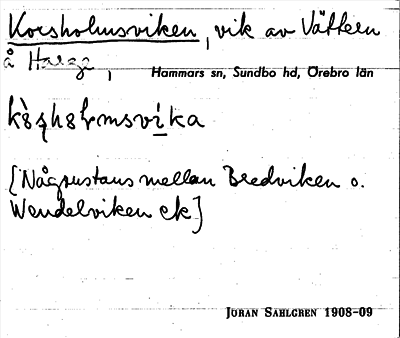 Korsholmsviken, vik av Vättern
å Harge, Hammars sn, Sundbo hd, Örebro län
kò̀ʂhɷɫmsvi̲ka
[Någonstans mellan Bredviken o.
Wendelviken ek]
JÖRAN SAHLGREN 1908-09